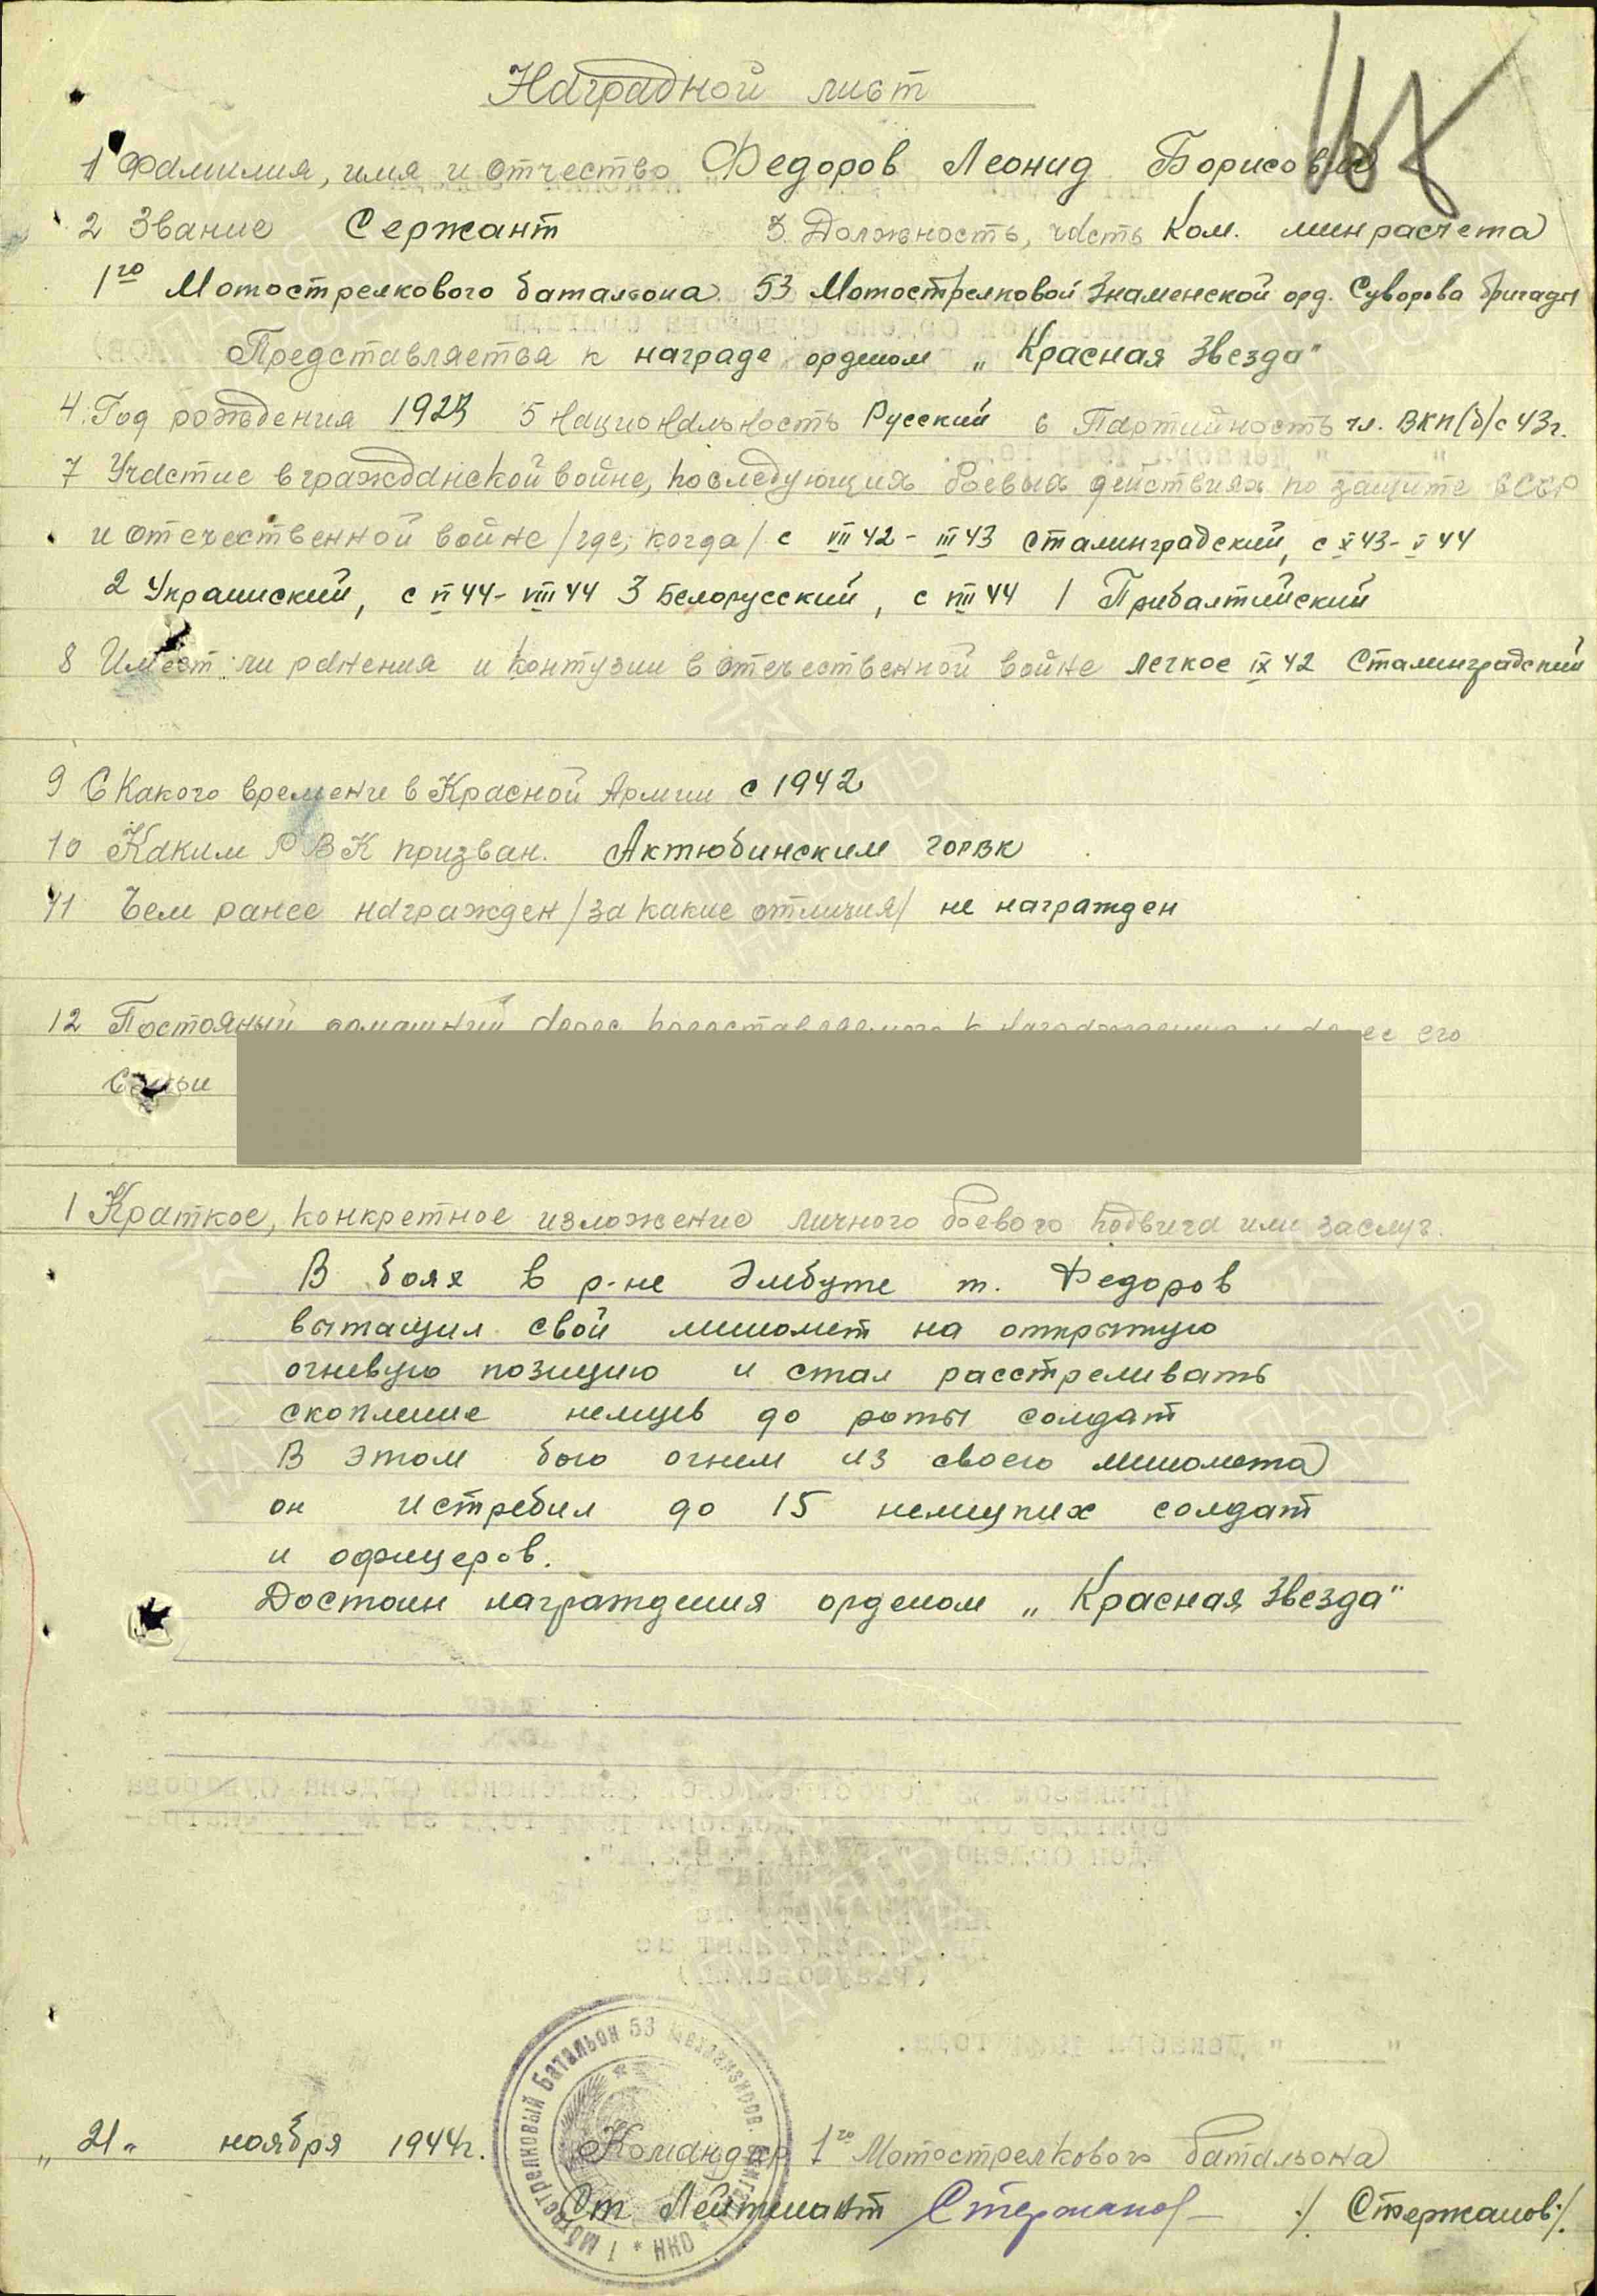 Наградной лист
1 Фамилия, имя и отчество Федоров Леонид Борисович
2 Звание Сержант 3. Должность, часть Ком. минрасчета
1го Мотострелкового батальона 53 Мотострелковой Знаменской орд. Суворова бригады
Представляется к награде орденом „Красная Звезда"
4. Год рождения 1923 5 Национальность Русский 6 Партийность чл. ВКП(б) с 43г.
7 Участие в гражданской войне, последующих боевых действиях по защите СССР
и отечественной войне /где, когда/ с VII 42 - III 43 Сталинградский, с X 43 - V 44
2 Украинский, с VI 44 - VIII 44 3 Белорусский, с VIII 44 1 Прибалтийский
8 Имеет ли ранения и контузии в отечественной войне легкое IX 42 Сталинградский
9 С Какого времени в Красной Армии с 1942
10 Каким РВК призван. Актюбинским горвк
11 Чем ранее награжден /за какие отличия/ не награжден
12 Постояный домашний адрес представляемого к награждению и адрес его
семьи
1 Краткое, конкретное изложение личного боевого подвига или заслуг.
В боях в р-не Элкбуте т. Федоров
вытащил свой миномет на открытую
огневую позицию и стал расстреливать
скопление немцев до роты солдат
В этом бою огнем из своего миномета
он истребил до 15 немецких солдат
и офицеров.
Достоин награждения орденом „Красная Звезда"
„21" ноября 1944г. Командир 1го Мотострелкового батальона
Ст Лейтенант Стержанов /Стержанов/.
1 Мотострелковый Батальон 53 Механизиров. Бригады * НКО *
ПАМЯТЬ НАРОДА